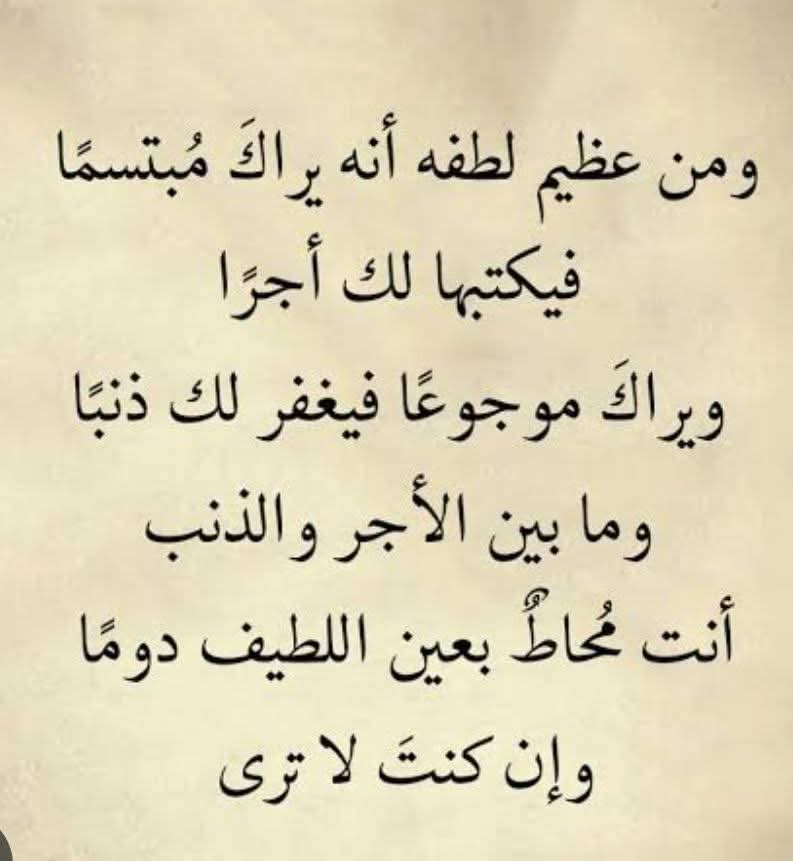 ومن عظيم لطفه أنه يراكَ مُبتسمًا
فيكتبها لك أجرًا
ويراكَ موجوعًا فيغفر لك ذنبًا
وما بين الأجر والذنب
أنت مُحاطٌ بعين اللطيف دومًا
وإن كنتَ لا ترى